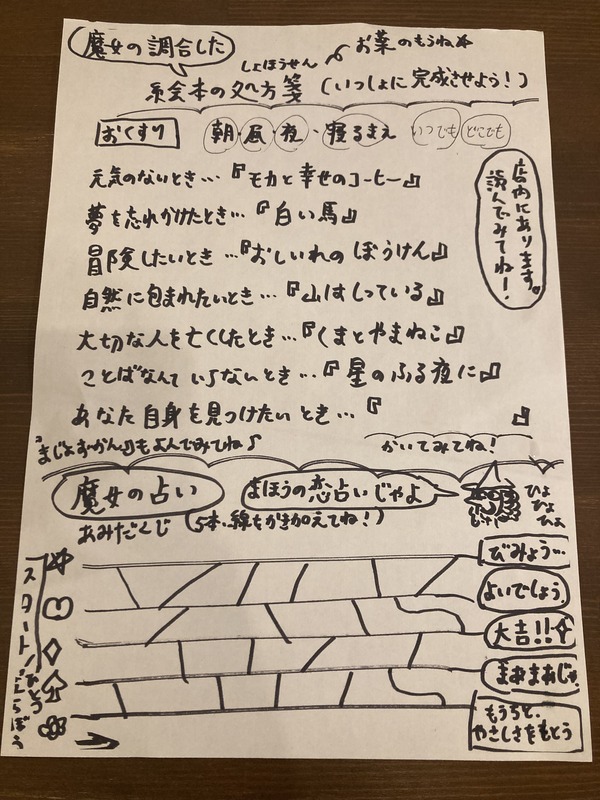 魔女の調合した
お薬のもうね
しょほうせん
絵本の処方箋 (いっしょに完成させよう!)
おくすり 朝・昼・夜・寝るまえ いつでも どこでも
元気のないとき…『モカと幸せのコーヒー』
夢を忘れかけたとき…『白い馬』
冒険したいとき…『おしいれのぼうけん』
自然に包まれたいとき…『山はしっている』
大切な人を亡くしたとき…『くまとやまねこ』
ことばなんていらないとき…『星のふる夜に』
あなた自身を見つけたいとき…『 』
店内にあります。
読んでみてね!
『まじょずかん』もよんでみてね♪
かいてみてね!
魔女の占い
まほうの恋占いじゃよ
ひょ
ひょ
ひょ
あみだくじ (5本、線をかき加えてね!)
スタート!
ひとつえらぼう
びみょう…
よいでしょう
大吉!!
まあまあじゃ
もうちと、
やさしさをもとう